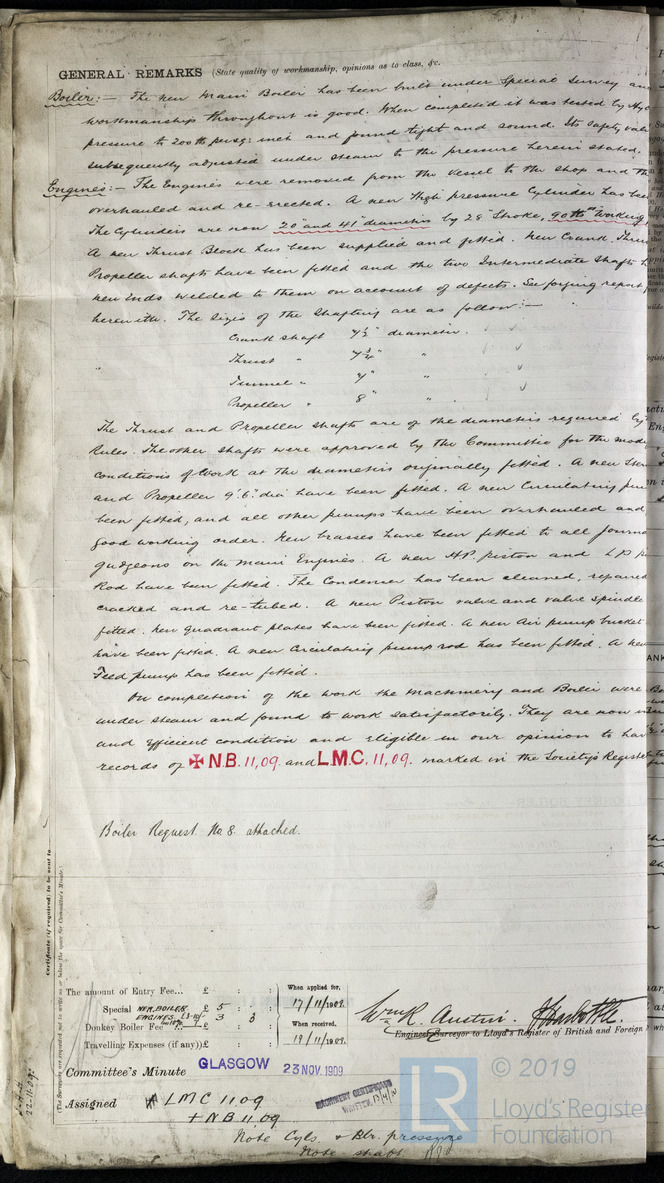 GENERAL REMARKS (State quality of workmanship, opinions as to class, &c.
Boiler:— The new Main Boiler has been built under Special Survey an
workmanship throughout is good. When completed it was tested by Hy
pressure to 200 lb per sq: inch and found tight and sound. Its safety val
subsequently adjusted under steam to the pressure herein stated.
Engines:— The Engines were removed from the vessel to the shop and th
overhauled and re-erected. A new High pressure Cylinder has bee
The Cylinders are now 20" and 41" diameters by 28" Stroke, 90 lbs Working
A new Thrust Block has been supplied and fitted. New Crank, Thrus
Propeller shafts have been fitted and the two Intermediate shafts h
new Ends welded to them on account of defects. See forging report
herewith. The sizes of the shafting are as follow:—
Crank shaft 7½" diameter.
Thrust " 7¾" "
Tunnel " 7" "
Propeller " 8" "
The Thrust and Propeller shafts are of the diameters required by
Rules. The other shafts were approved by the Committee for the mod
conditions of work at the diameters originally fitted. A new Ster
and Propeller 9'.6" dia have been fitted. A new Circulating pu
been fitted, and all other pumps have been overhauled and
good working order. New brasses have been fitted to all Journa
gudgeons on the Main Engines. A new H.P. piston and L.P. p
Rod have been fitted. The Condenser has been cleaned, repaired
cracked and re-tubed. A new Piston valve and valve spindle
fitted. New quadrant plates have been fitted. A new Air pump bucket
have been fitted. A new Circulating pump rod has been fitted. A new
Feed pump has been fitted.
On completion of the work the Machinery and Boiler were
under steam and found to work satisfactorily. They are now in
and efficient condition and eligible in our opinion to hav
records of ✠ N.B. 11,09. and L.M.C. 11,09. marked in the Society's Register
Boiler Request No 8 attached.
Certificate (if required) to be sent to
(The Surveyors are requested not to write on or below the space for Committee's Minute.)
The amount of Entry Fee... £ : :
When applied for,
Special NEW BOILER £ 5 : :
17/11/1909.
ENGINES 3 3
Donkey Boiler Fee £ : :
When received,
Travelling Expenses (if any) £ : :
19/11/1909.
Wm R. Austin.
Engineer Surveyor to Lloyd's Register of British and Foreign
Committee's Minute GLASGOW 23 NOV. 1909
Assigned LMC 11.09
+ NB 11.09
MACHINERY CERTIFICATE
WRITTEN
Note Cyls. & Blr. pressure
Note shaft
22.11.09
LR © 2019
Lloyd's Register
Foundation